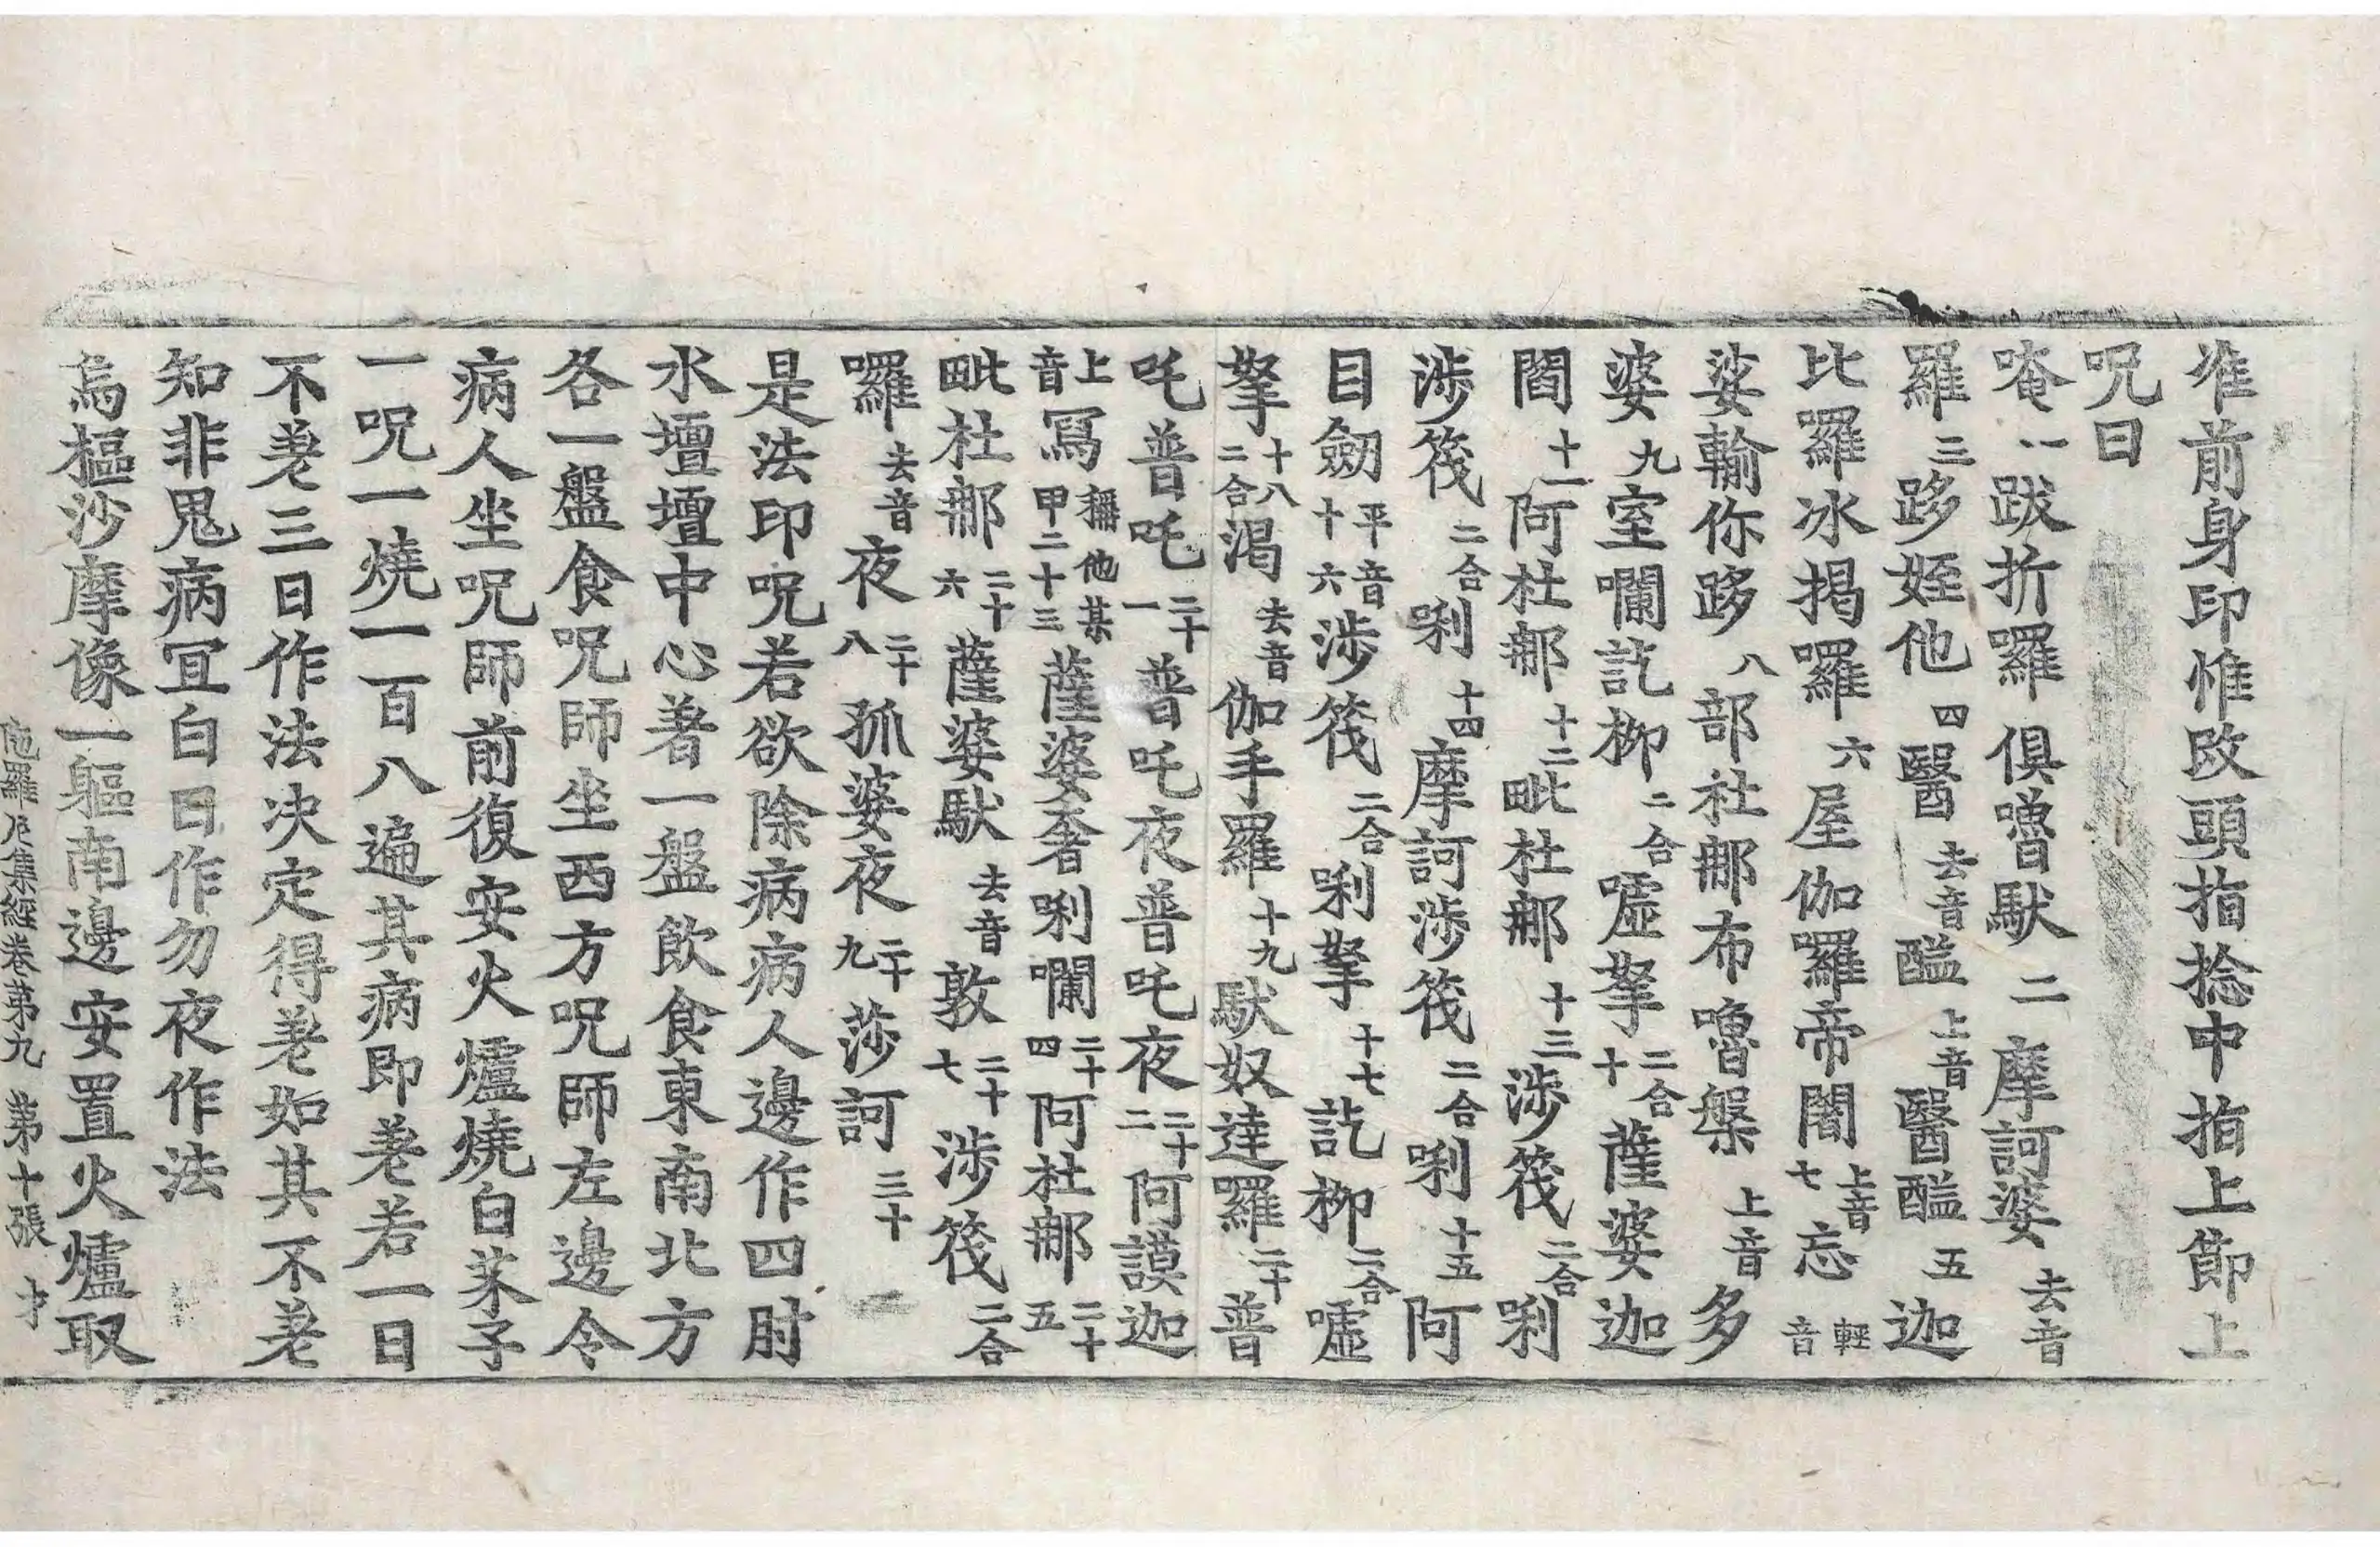 准前身印惟改頭指捻中指上節上
呪曰
唵一跋折囉俱嚕馱二摩訶婆去音
羅三跢姪他四醫去音醯上音醫醯五迦
比羅冰揭羅六屋伽羅帝闍上音七忘輕音
娑輸你跢八部社那布嚕槃上音多
婆九室𡃤訖栁二合嘘拏二合十薩婆迦
閻十一阿杜那十二毗杜那十三涉筏二合唎
涉筏二合唎十四摩訶涉筏二合唎十五阿
目劒平音十六涉筏二合唎拏十七訖栁二合嘘
拏十八二合渴去音伽手羅十九馱奴達羅二十普
吒普吒二十一普吒夜普吒夜二十二阿謨迦
上音寫稱他某甲二十三薩婆奢唎𡃤二十四阿杜那二十五
毗杜那二十六薩婆馱去音敦二十七涉筏二合
囉去音夜二十八孤婆夜二十九莎訶三十
是法印呪若欲除病病人邊作四肘
水壇壇中心著一盤飲食東南北方
各一盤食呪師坐西方呪師左邊令
病人坐呪師前復安火爐燒白芥子
一呪一燒一百八遍其病即差若一日
不差三日作法决定得差如其不差
知非鬼病冝白日作勿夜作法
烏樞沙摩像一軀南邊安置火爐取
陁羅尼集經卷第九 第十張 才